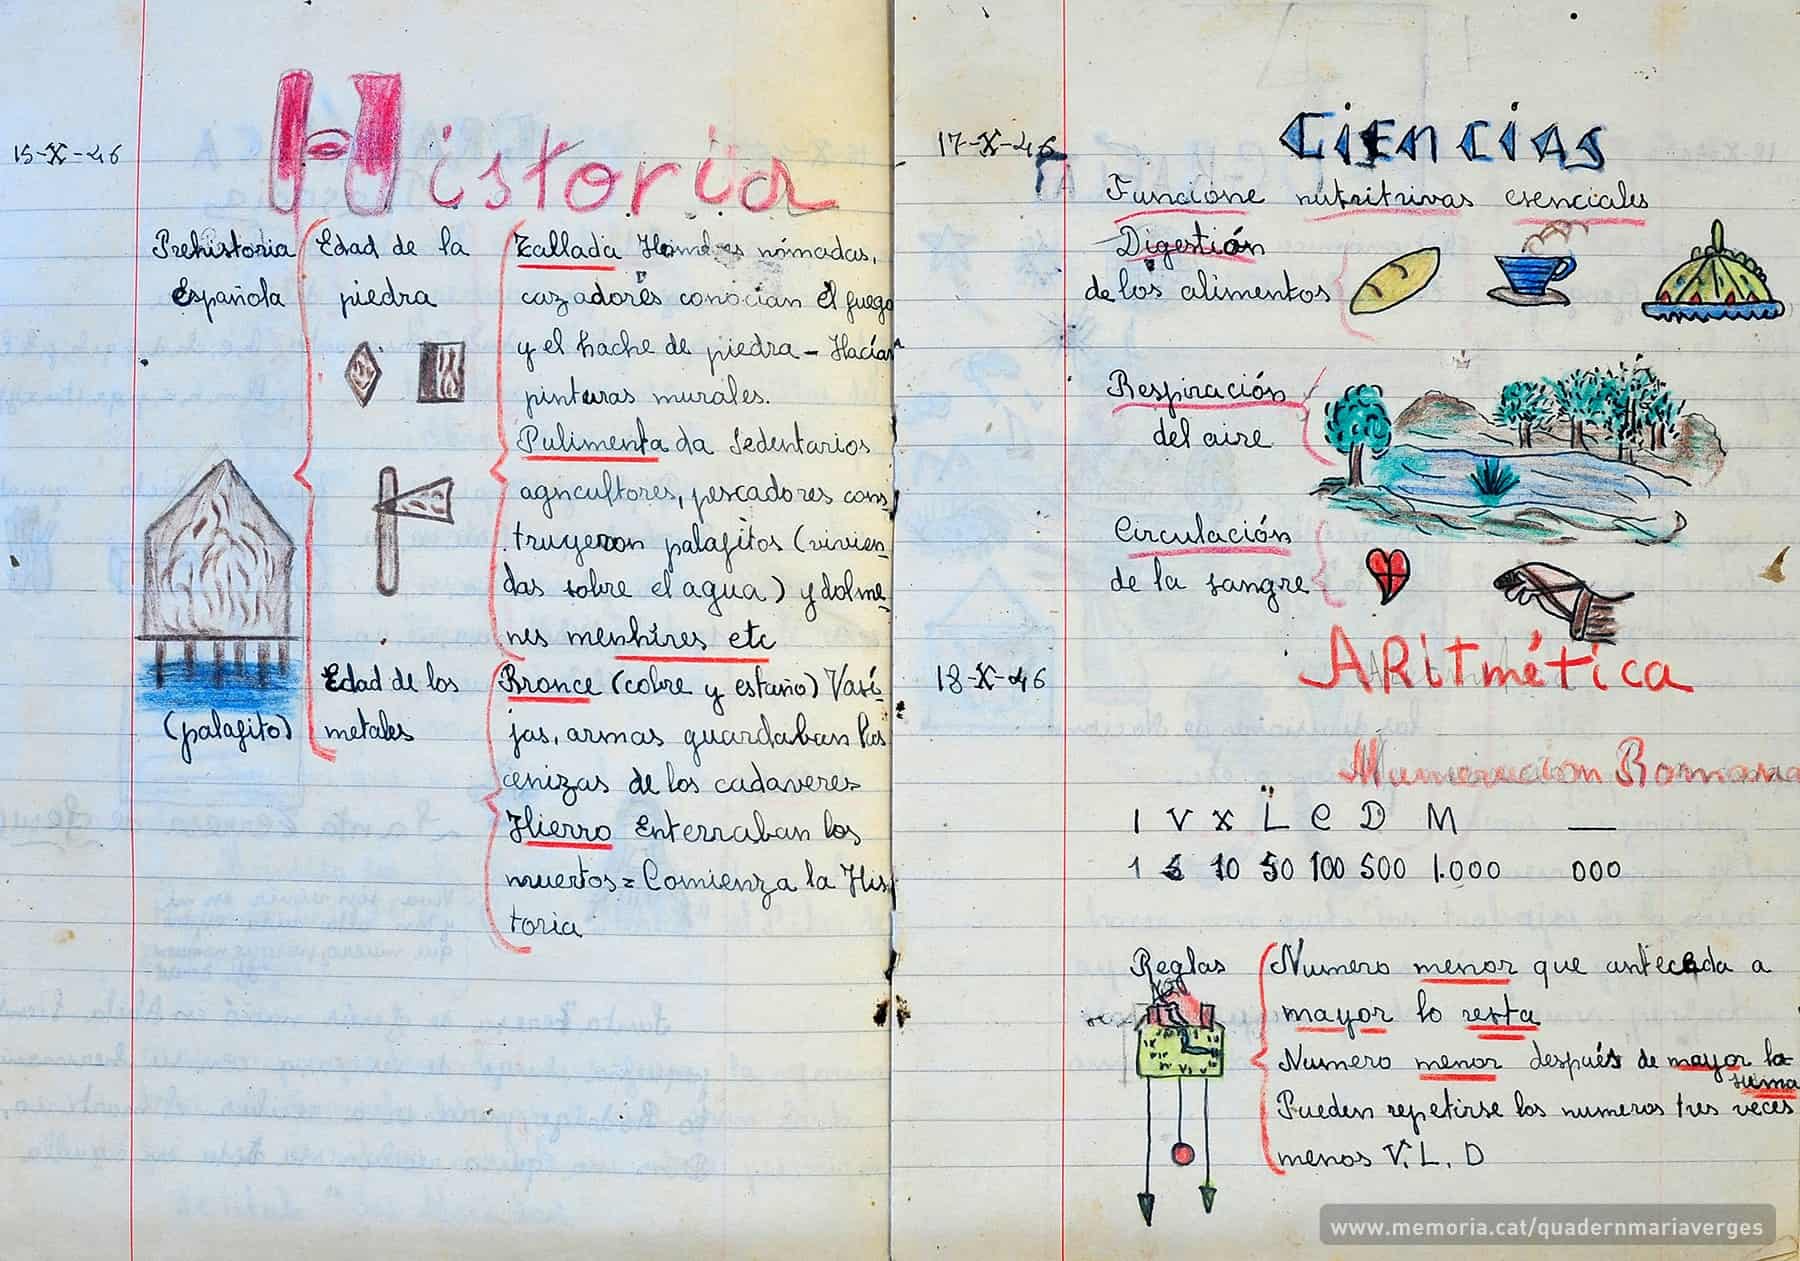 15-X-46
Historia
Prehistoria
Española
(palafito)
Edad de la
piedra
Tallada Hombres nómadas,
cazadores conocian el fuego
y el hache de piedra - Hacían
pinturas murales.
Pulimentada Sedentarios
agricultores, pescadores cons-
truyeron palafitos (vivien-
das sobre el agua) y dolme-
nes menhires etc
Edad de los
metales
Bronce (cobre y estaño) Vasi-
jas, armas guardaban las
cenizas de los cadaveres=
Hierro Enterraban los
muertos= Comienza la His
toria
17-X-46
CIENCIAS
Funcione nutritrivas esenciales
Digestión
de los alimentos
Respiración
del aire
Circulación
de la sangre
18-X-46
ARitmética
Numeración Romana
I V X L C D M —
1 5 10 50 100 500 1.000 000
Reglas
Numero menor que anteceda a
mayor lo resta
Numero menor después de mayor la
suma
Pueden repetirse los numeros tres veces
menos V, L, D
www.memoria.cat/quadernmariaverges